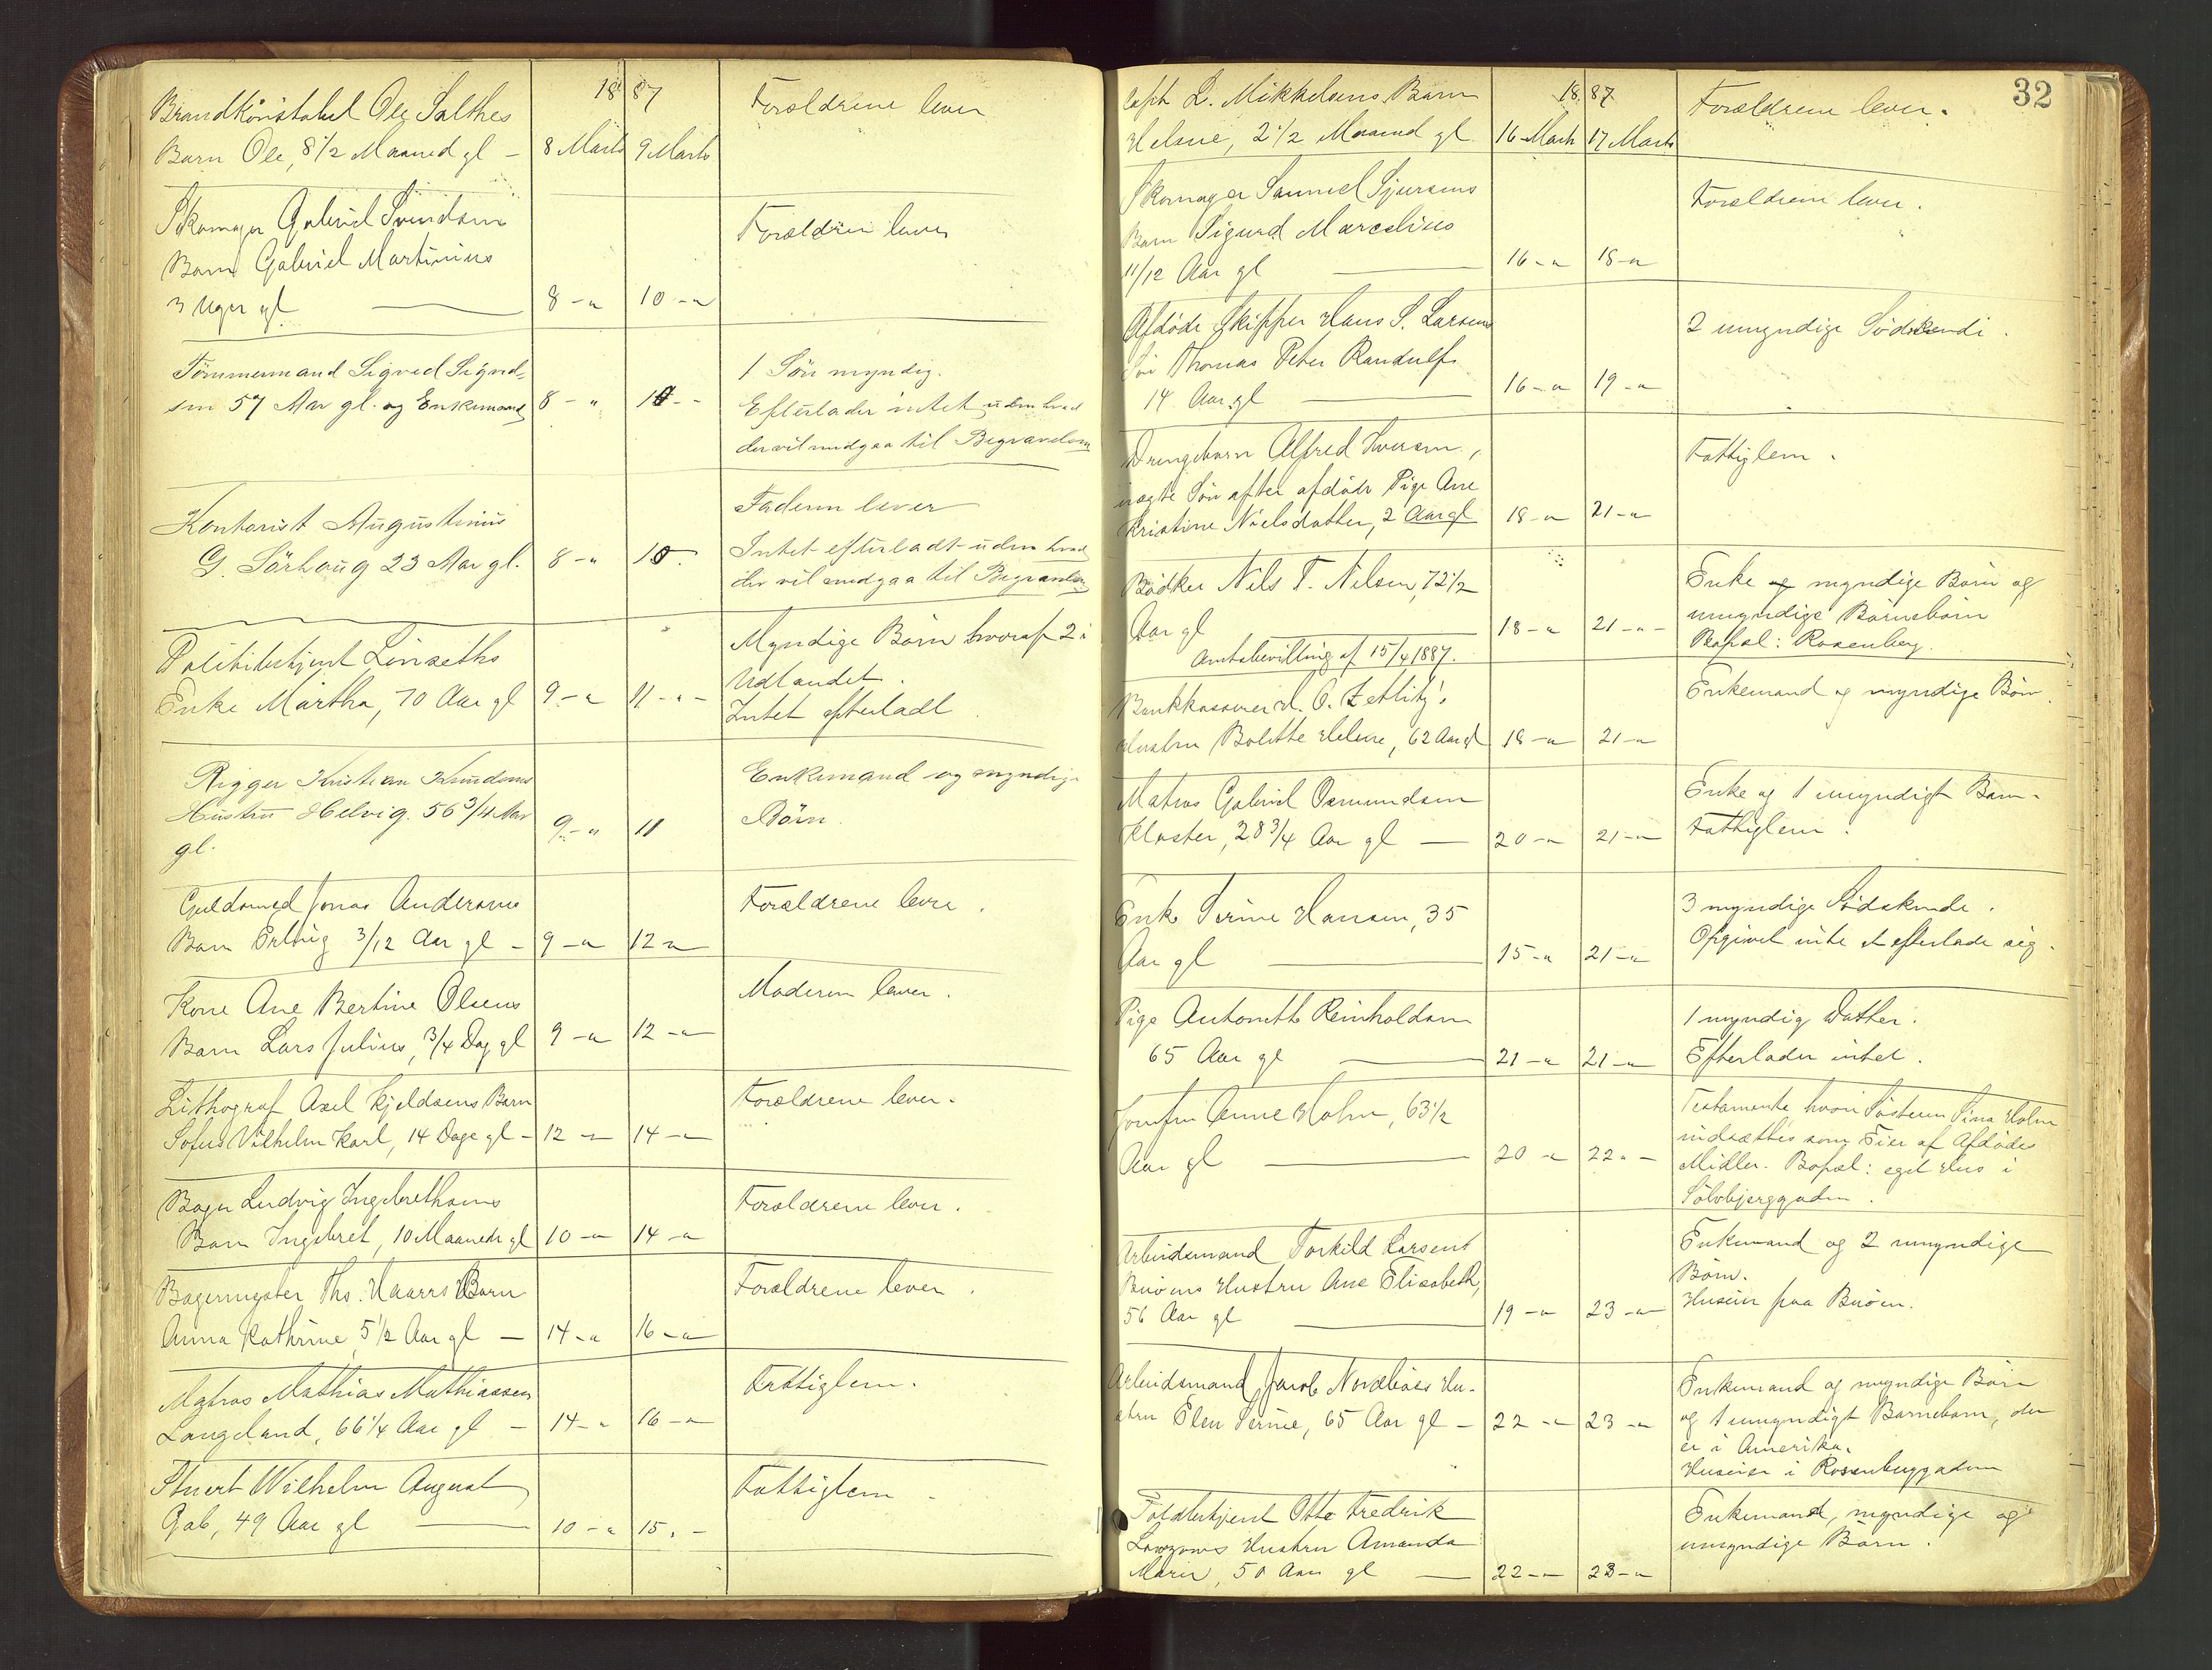 Brandkonstabel Ole Salthes 18 87 Forældrene lever
Barn Ole, 8 1/2 Maaned gl - 8 Marts 9 Marts
Skomager Gabriel Svendsens
Barn Gabriel Martinius Forældrene lever
3 Uger gl 8 - " 10 - "
Tömmermand Sigved Sigved- 1 Sön myndig.
sen 57 Aar gl. og Enkemand 8 - " 10 - - Efterlader intet uden hvad
der vil medgaa til Begravelsen
Faderen lever
Kontorist Augustinius
G. Sörhaug 23 Aar gl. 8 - " 10. Intet efterladt uden hvad
der vil medgaa til Begravelsen
Myndige Börn hvoraf 2 i
Politibetjent Linseths Udlandet.
Enke Martha, 70 Aar gl 9 - " 11 - " - Intet efterladt.
Rigger Kristian Knudsens Enkemand og myndige
Hustru Helvig. 56 3/4 Aar Börn.
gl. 9 - " 11
Guldsmed Jonas Andersens Forældrene leve.
Barn Erling 3/12 Aar gl - 9 - " 12 "
Kone Ane Bertine Olsens Moderen lever.
Barn Lars Julius, 3/4 Dag gl 9 - " 12 - "
Lithograf Axel Kjeldsens Barn Forældrene lever.
Sofus Vilhelm Karl, 14 Dage gl - 12 - 14 - "
Bager Ludvig Ingebrethsens Forældrene lever.
Barn Ingebret, 10 Maaneder gl 10 - " 14 - "
Bagermester Ths. Haarrs Barn Forældrene lever.
Anna Kathrine 5 1/2 Aar gl - 14 - " 16 - "
Matros Mathias Mathiassen Fattiglem.
Langeland, 66 1/4 Aar gl - 14 - " 16 - "
Stuert Wilhelm August Fattiglem.
Gab, 49 Aar gl 10 - " 15. -
32
Capt L. Mikkelsens Barn 18 87 Forældrene lever.
Helene, 2 1/2 Maaned gl 16 Marts 17 Marts
Skomager Samuel Sjursens Forældrene lever.
Barn Sigurd Marcelius
11/12 Aar gl 16 - " 18 - "
Afdöde Skipper Hans S. Larsens 2 umyndige Södskende.
Sön Thomas Peter Randulf
14 Aar gl 16 - " 19 - "
Drengebarn Alfred Iversen, Fattiglem.
uægte Sön efter afdöde Pige Ane
Kristine Nielsdatter, 2 Aar gl 18 - " 21 - "
Bödker Nils T. Nilsen, 72 1/2 Enke og myndige Börn og
Aar gl 18 - " 21 - " - umyndige Barnebörn
Amtsbevilling af 15/4 1887. Bopæl: Rosenberg.
Bankkasserer H. O. Zetlitz' Enkemand og myndige Börn.
Hustru Bolette Helene, 62 Aar gl 18 - " 21 - "
Matros Gabriel Osmundsen Enke og 1 umyndigt Barn.
Kloster, 28 3/4 Aar gl 20 - " 21 - " Fattiglem.
Enke Serine Hansen, 35 3 myndige Södskende.
Aar gl 15 - " 21 - " Opgivet intet at efterlade sig.
Pige Antonette Reinholdsen 1 myndig Datter.
65 Aar gl 21 - " 21 - " Efterlader intet.
Jomfru Anne Holm, 63 1/2 Testamente, hvori Sösteren Sina Holm
Aar gl 20 - " 22. - indsættes som Eier af Afdödes
Midler. Bopæl: eget Hus i
Sölvbjerggaden.
Arbeidsmand Torkild Larsens Enkemand og 2 umyndige
Buöens Hustru Ane Elisabeth, Börn.
56 Aar gl 19 - " 23 - " Huseier paa Buöen.
Arbeidsmand Jacob Nordböes Hu- Enkemand og myndige Börn
stru Elen Serine, 65 Aar gl - 22 - " 23 - " og 1 umyndigt Barnebarn, der
er i Amerika.
Huseier i Rosenberggaden
Toldbetjent Otto Fredrik Enkemand, myndige og
Hustru Amanda umyndige Börn.
Marie, 50 Aar gl 22 - " 23 - "